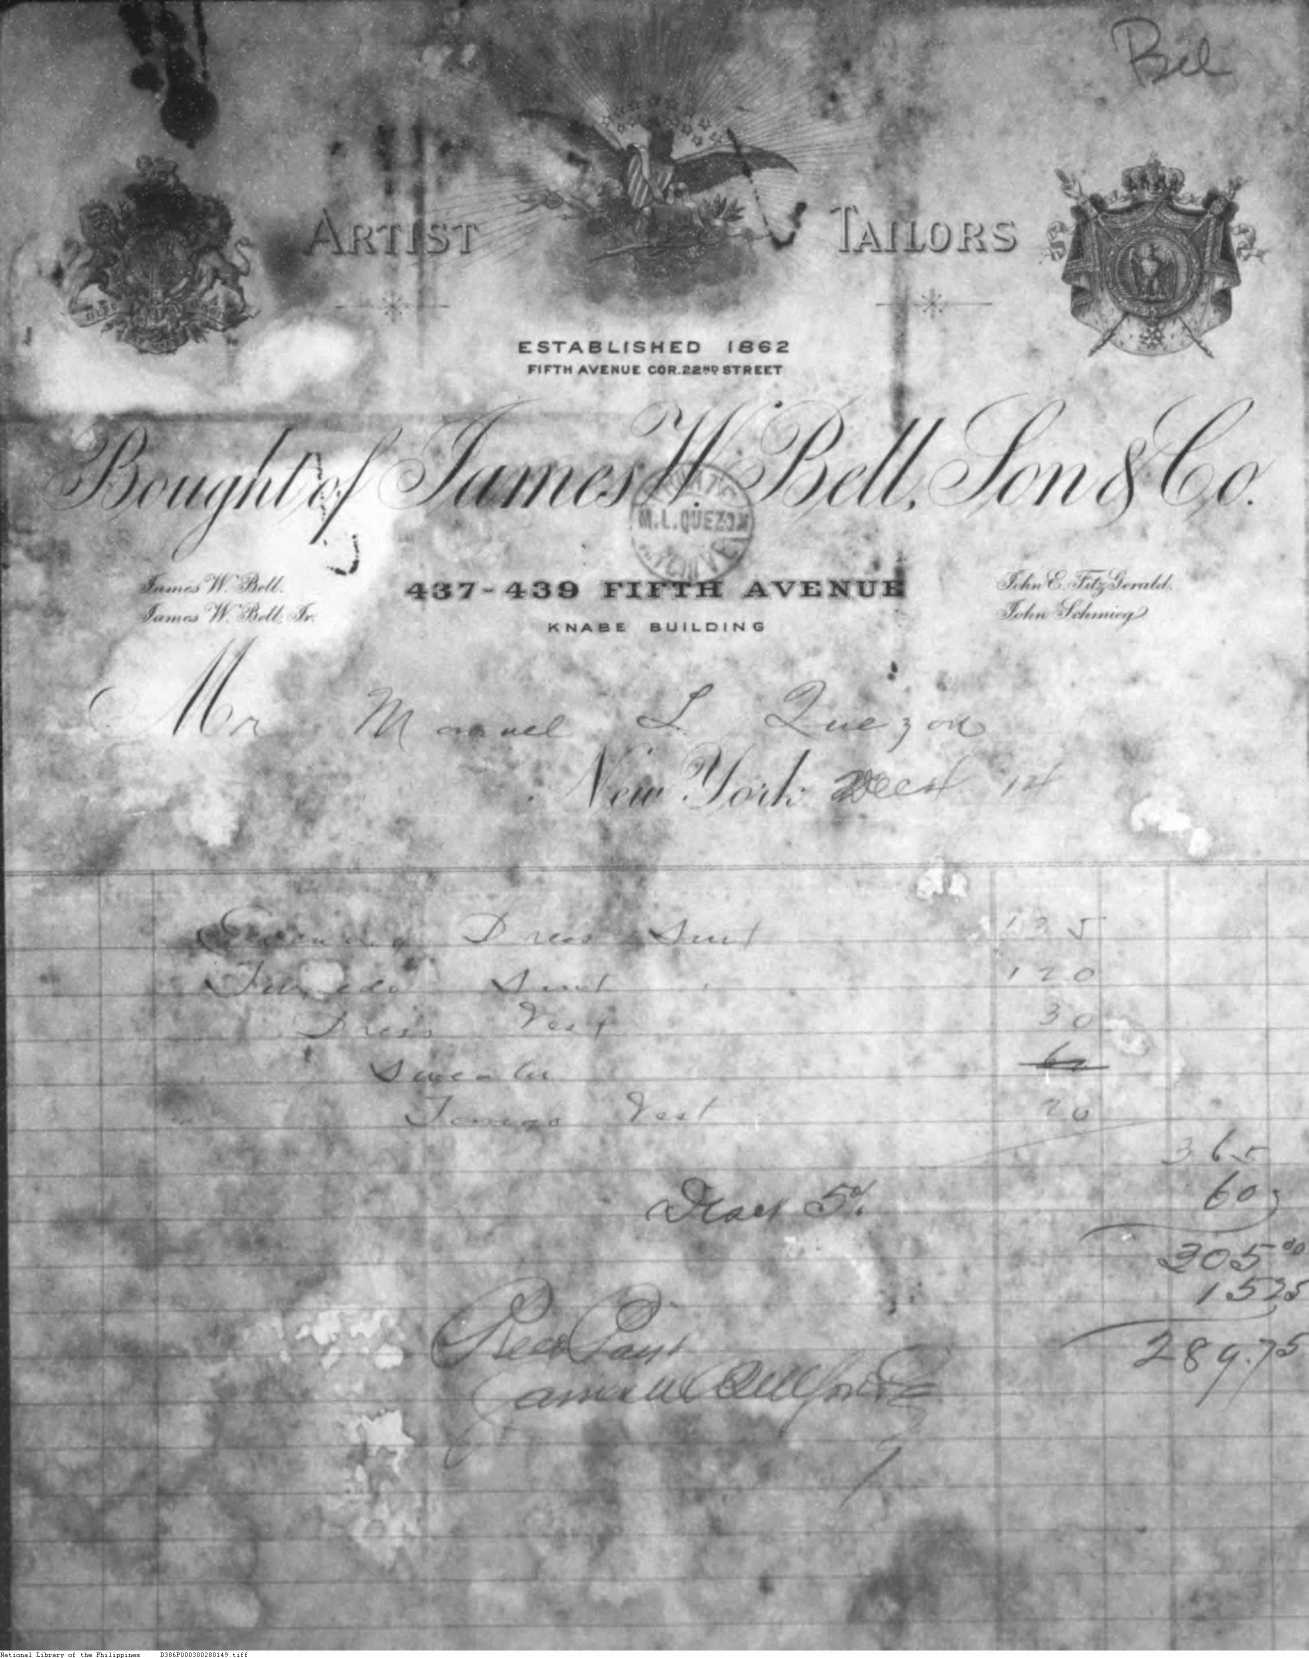 Bill
ARTIST TAILORS
ESTABLISHED 1862
FIFTH AVENUE COR. 22ND STREET
Bought of James W. Bell, Son & Co.
PRIVATE
M.L. QUEZON
James W. Bell.
James W. Bell, Jr.
437-439 FIFTH AVENUE
KNABE BUILDING
John E. FitzGerald.
John Schmieg
Mr Manuel L Quezon
New York 14
Evening Dress Suit 135
Tuxedo Suit 120
Dress Vest 30
Sweater
Vest
365
60
Disct 5%
305.00
15 25
289.75
Recd Payt
James W Bell Son & Co
National Library of the Philippines D386P000300280149.tiff